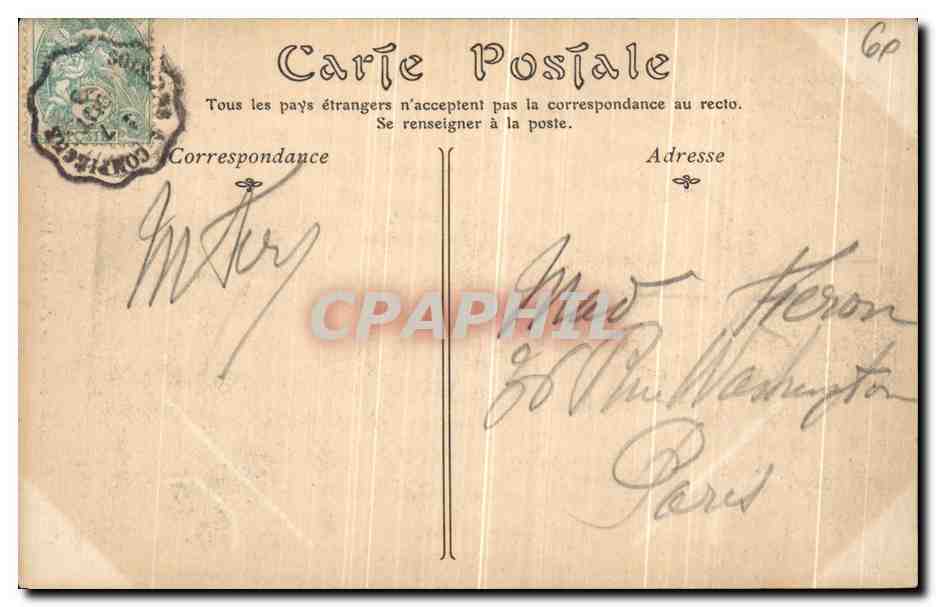 6P
Carte Postale
Tous les pays étrangers n'acceptent pas la correspondance au recto.
Se renseigner à la poste.
Correspondance
Adresse
CPAPHIL
Mad Heron
Rue Washington
Paris
COMPIEGNE